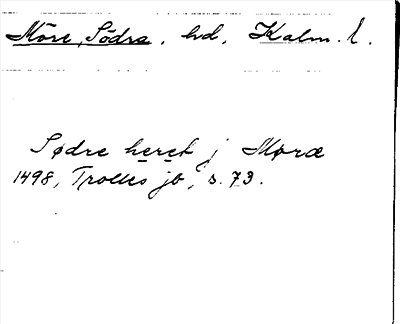 Möre, Södra, hd, Kalm. l.
Sødre heret j Møræ
1498, Trolles jb, s. 73.